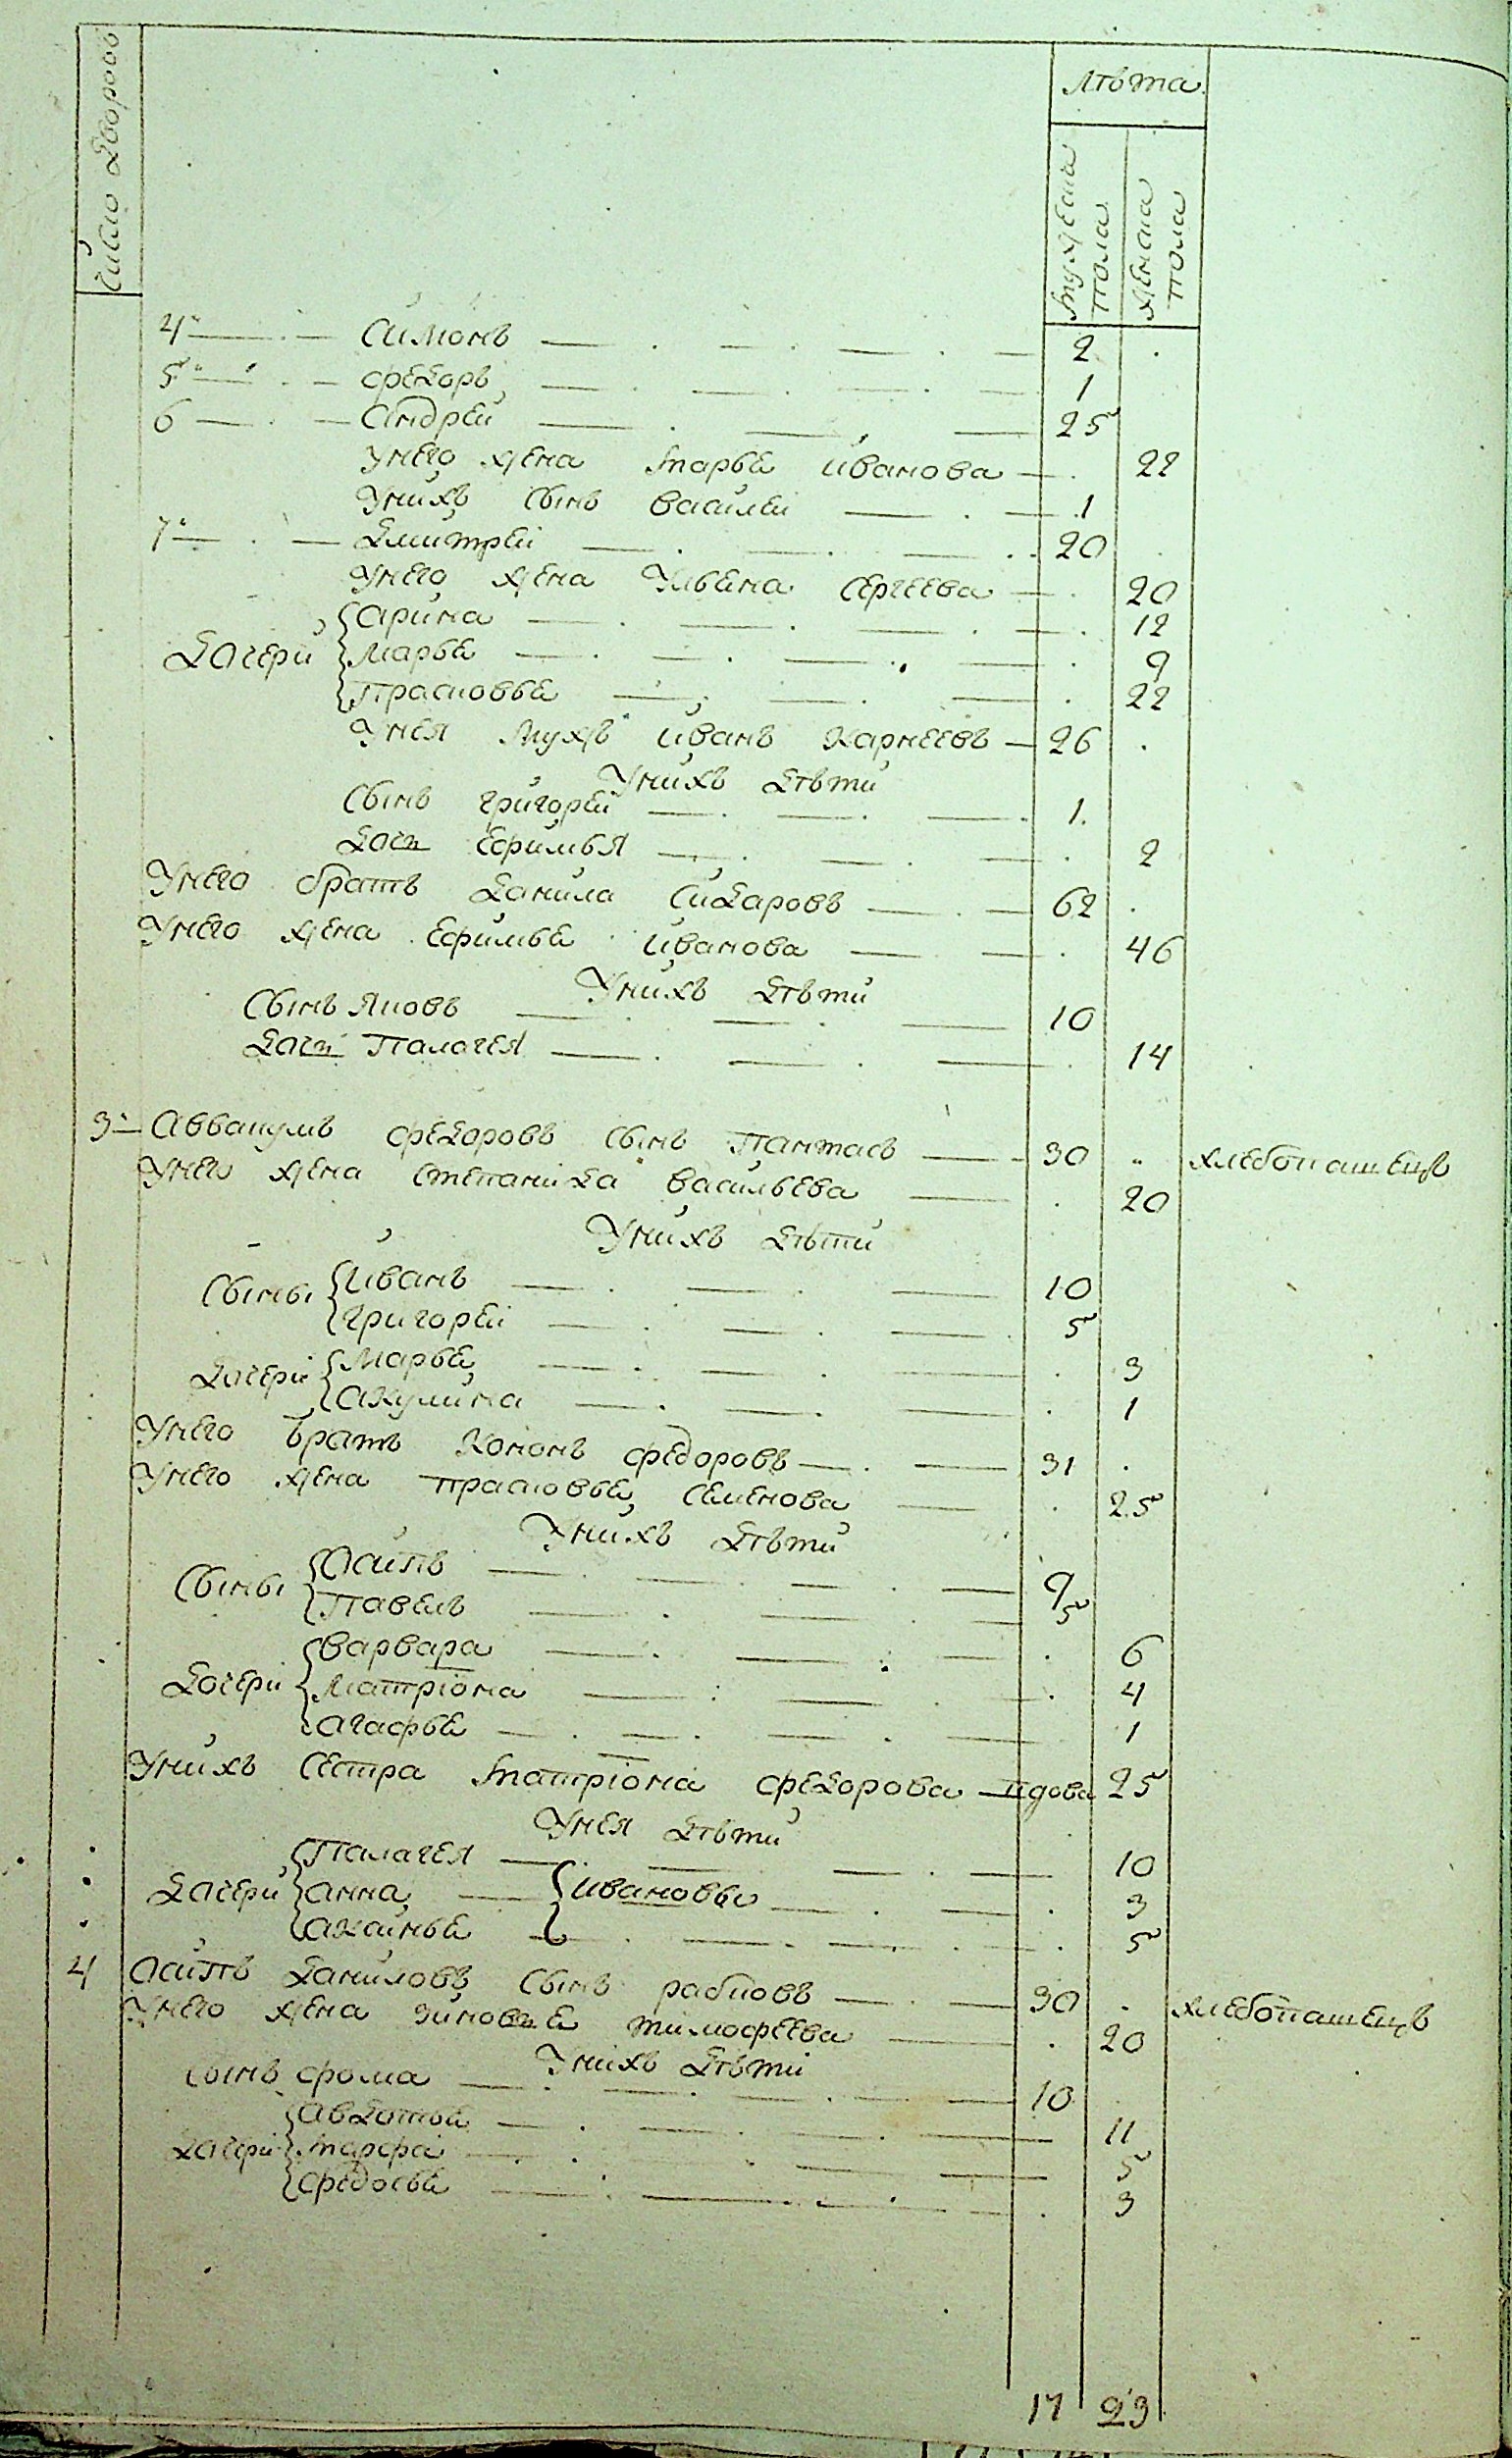 Число дворовъ
Лѣта
мужеска пола
женска пола
4 Симонъ 2
5 Федоръ 1
6 Андрей 25
У него жена Марья Иванова 22
У нихъ сынъ Василей 1
7 Дмитрей 20
У него жена Ульяна Сергеева 20
Арина 12
Дочери Марья 9
Прасковья 22
У нея мужъ Иванъ Карнеевъ 26
У нихъ дѣти
Сынъ Григорей 1
Дочь Ефимья 2
У него братъ Данила Сидаровъ 62
У него жена Ефимья Иванова 46
У нихъ дѣти
Сынъ Яковъ 10
Дочь Палагея 14
3 Аввакумъ Федоровъ сынъ 30 хлебопашецъ
У него жена Степанида Васильева 20
У нихъ дѣти
Сыны Иванъ 10
Григорей 5
Дочери Марья 3
Акулина 1
У него братъ Кононъ Федоровъ 31
У него жена Прасковья Семенова 25
У нихъ дѣти
Сыны Осипъ 9
Павелъ 5
Варвара 6
Дочери Матриона 4
Агафья 1
У нихъ сестра Матриона Федорова вдова 25
У нея дѣти
Палагея 10
Дочери Анна Ивановы 3
Аксинья 5
4 Осипъ Даниловъ сынъ 30 хлебопашецъ
У него жена Зиновья Тимофеева 20
У нихъ дѣти
Сынъ Фома 10
Авдотья 11
Дочери Марфа 5
Федосья 3
17 23